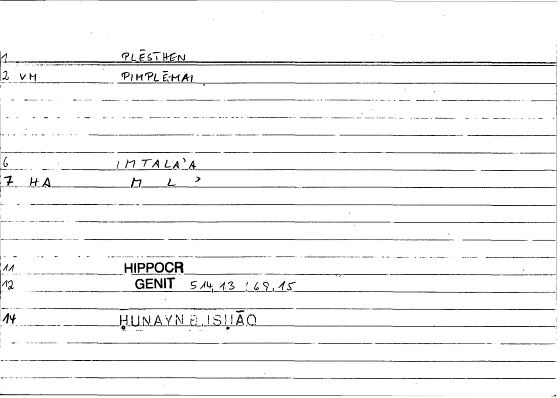 1 PLĒSTHEN
2 VM PIMPLĒMAI
6 IMTALA'A
7 HA M L ʾ
11 HIPPOCR
12 GENIT 514,13 : 69,15
14 ḤUNAYN B. ISḤĀQ